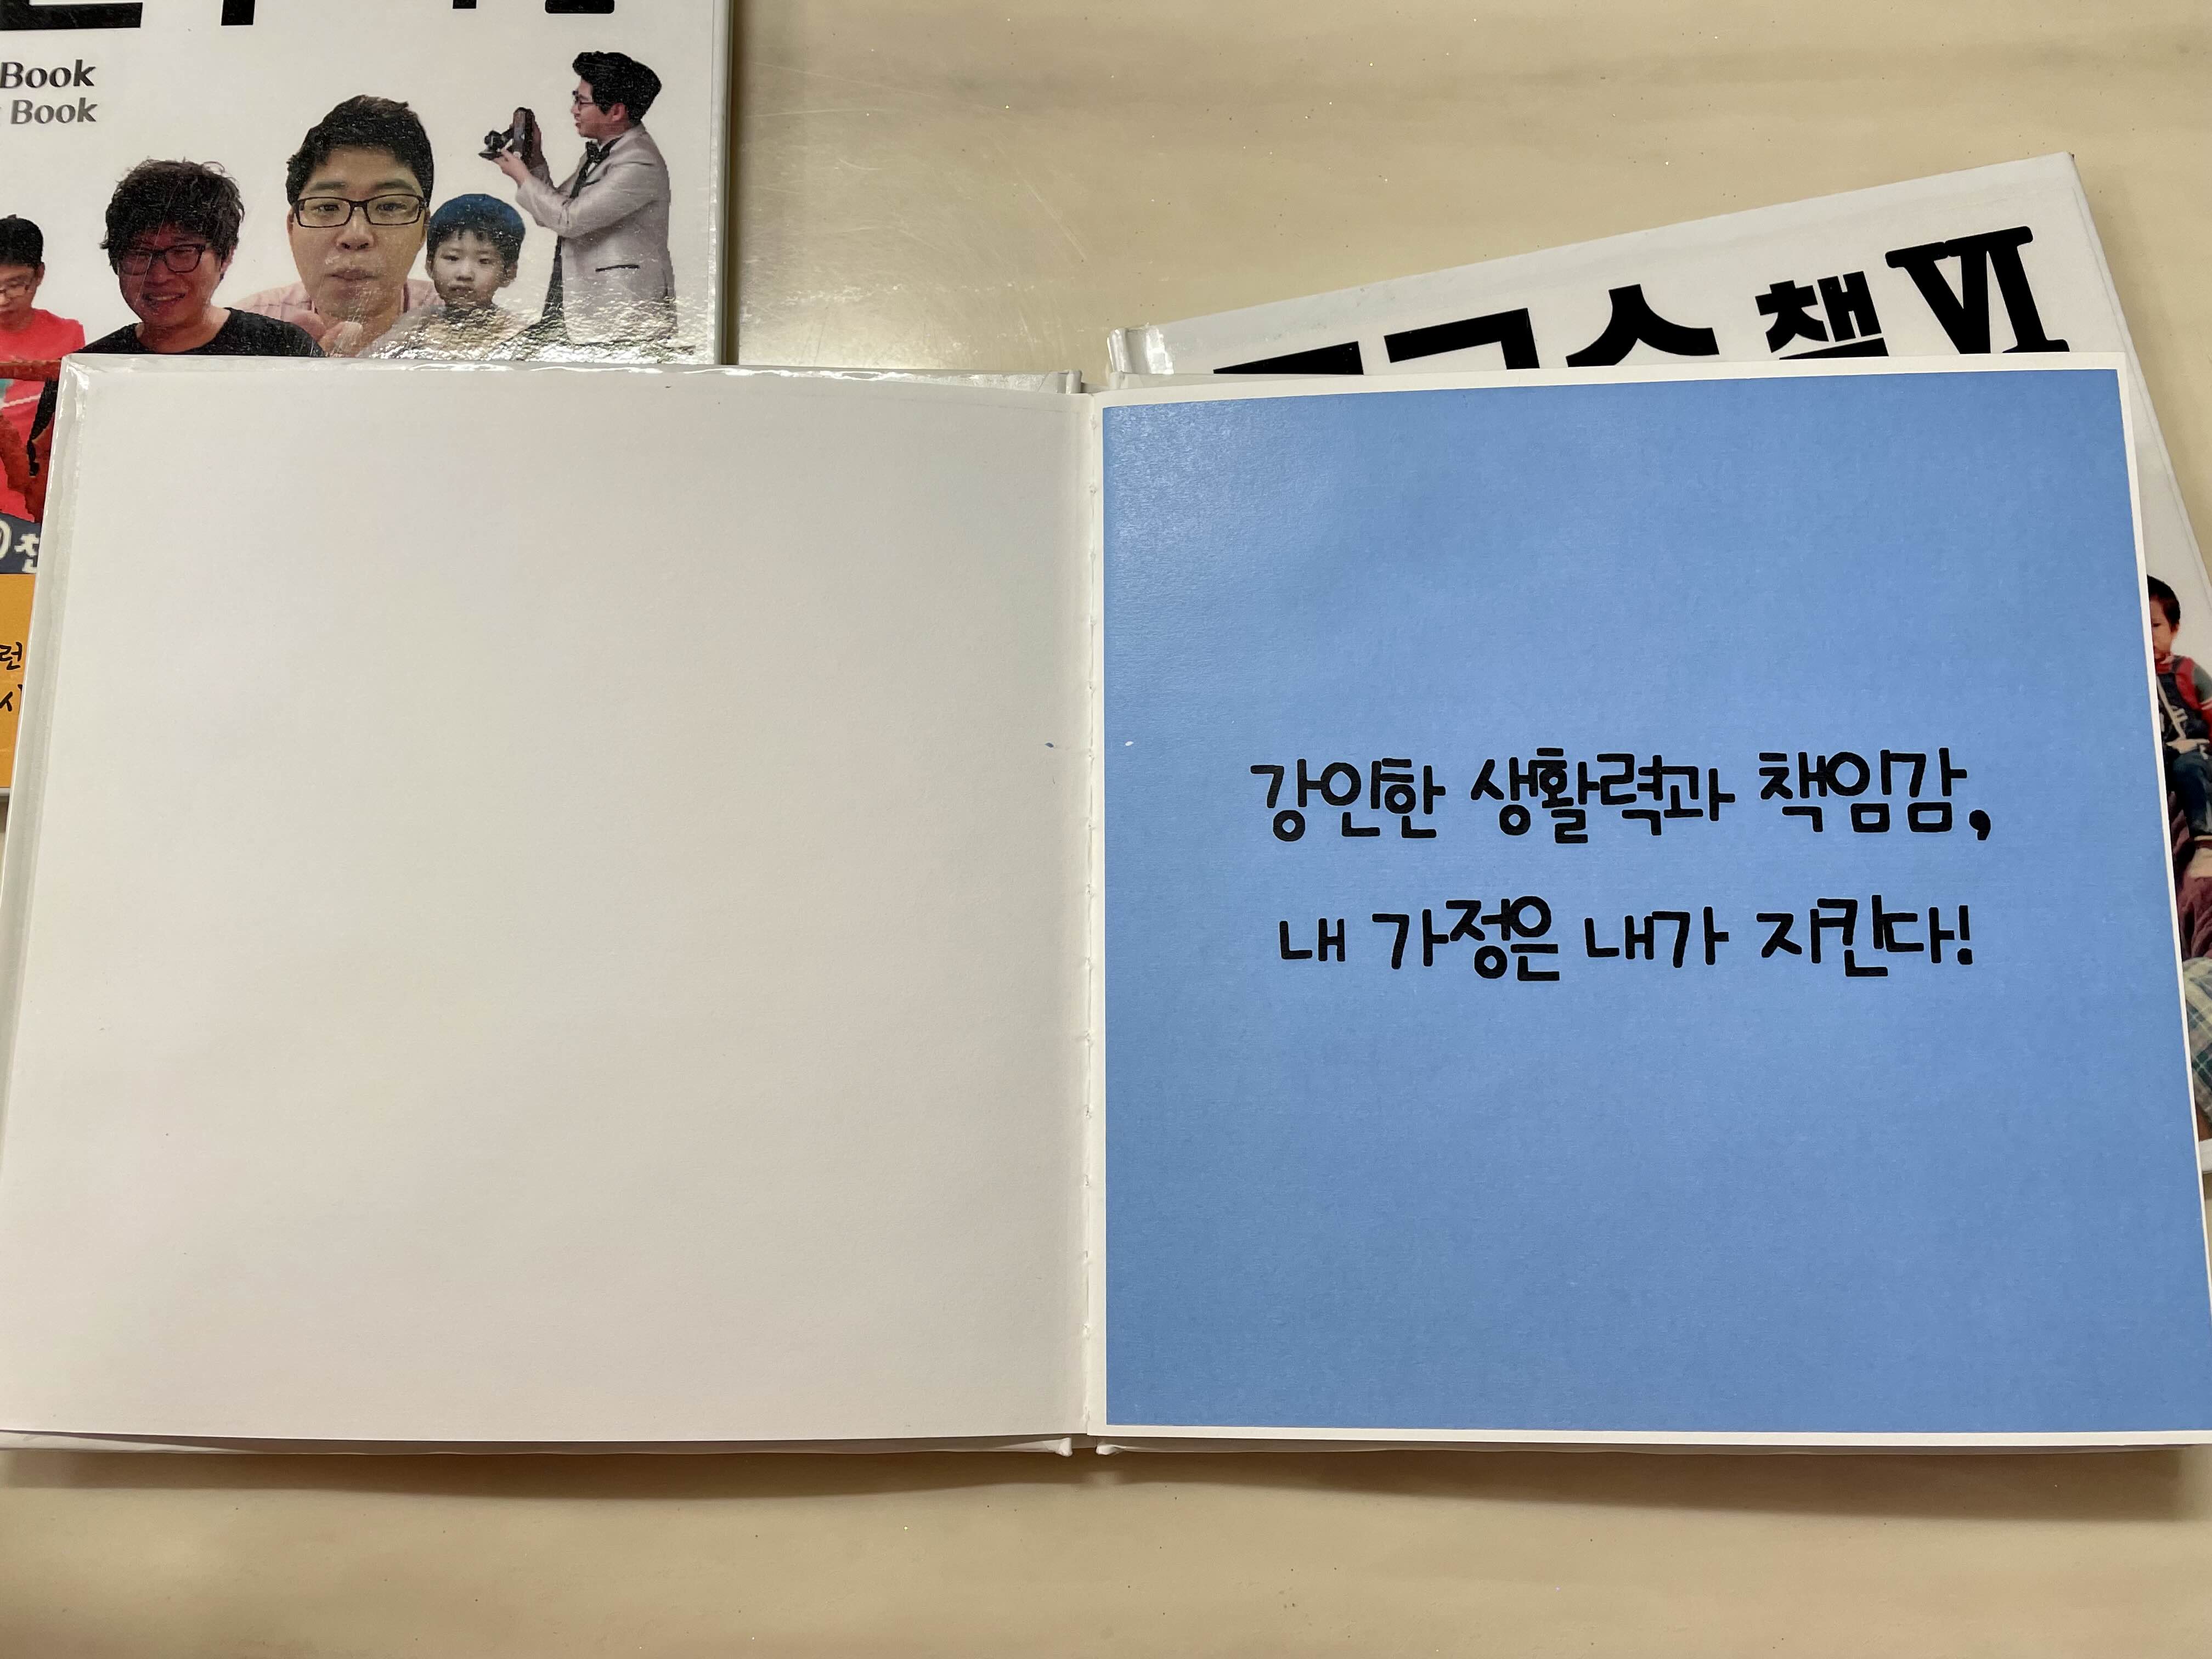 Book
Book
책 VI
강인한 생활력과 책임감,
내 가정은 내가 지킨다!